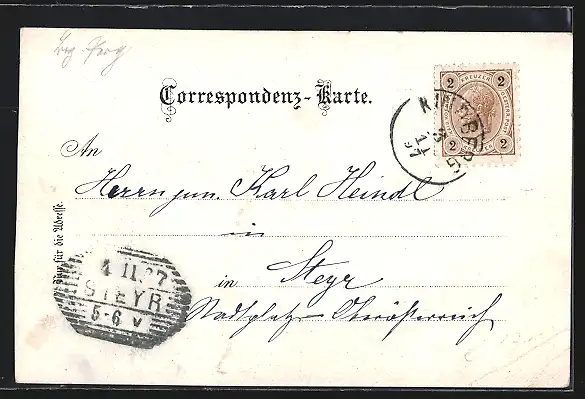 Correspondenz-Karte.
2 KREUZER 2
2 2
3 11 97
An
Herrn jun. Karl Heindl
in
in Steyr
Stadtplatz - Oberösterreich
Nur für die Adresse.
4 11 97
STEYR
5-6 V